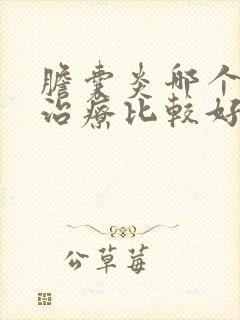 膽囊炎哪个
治療比較好
公草莓